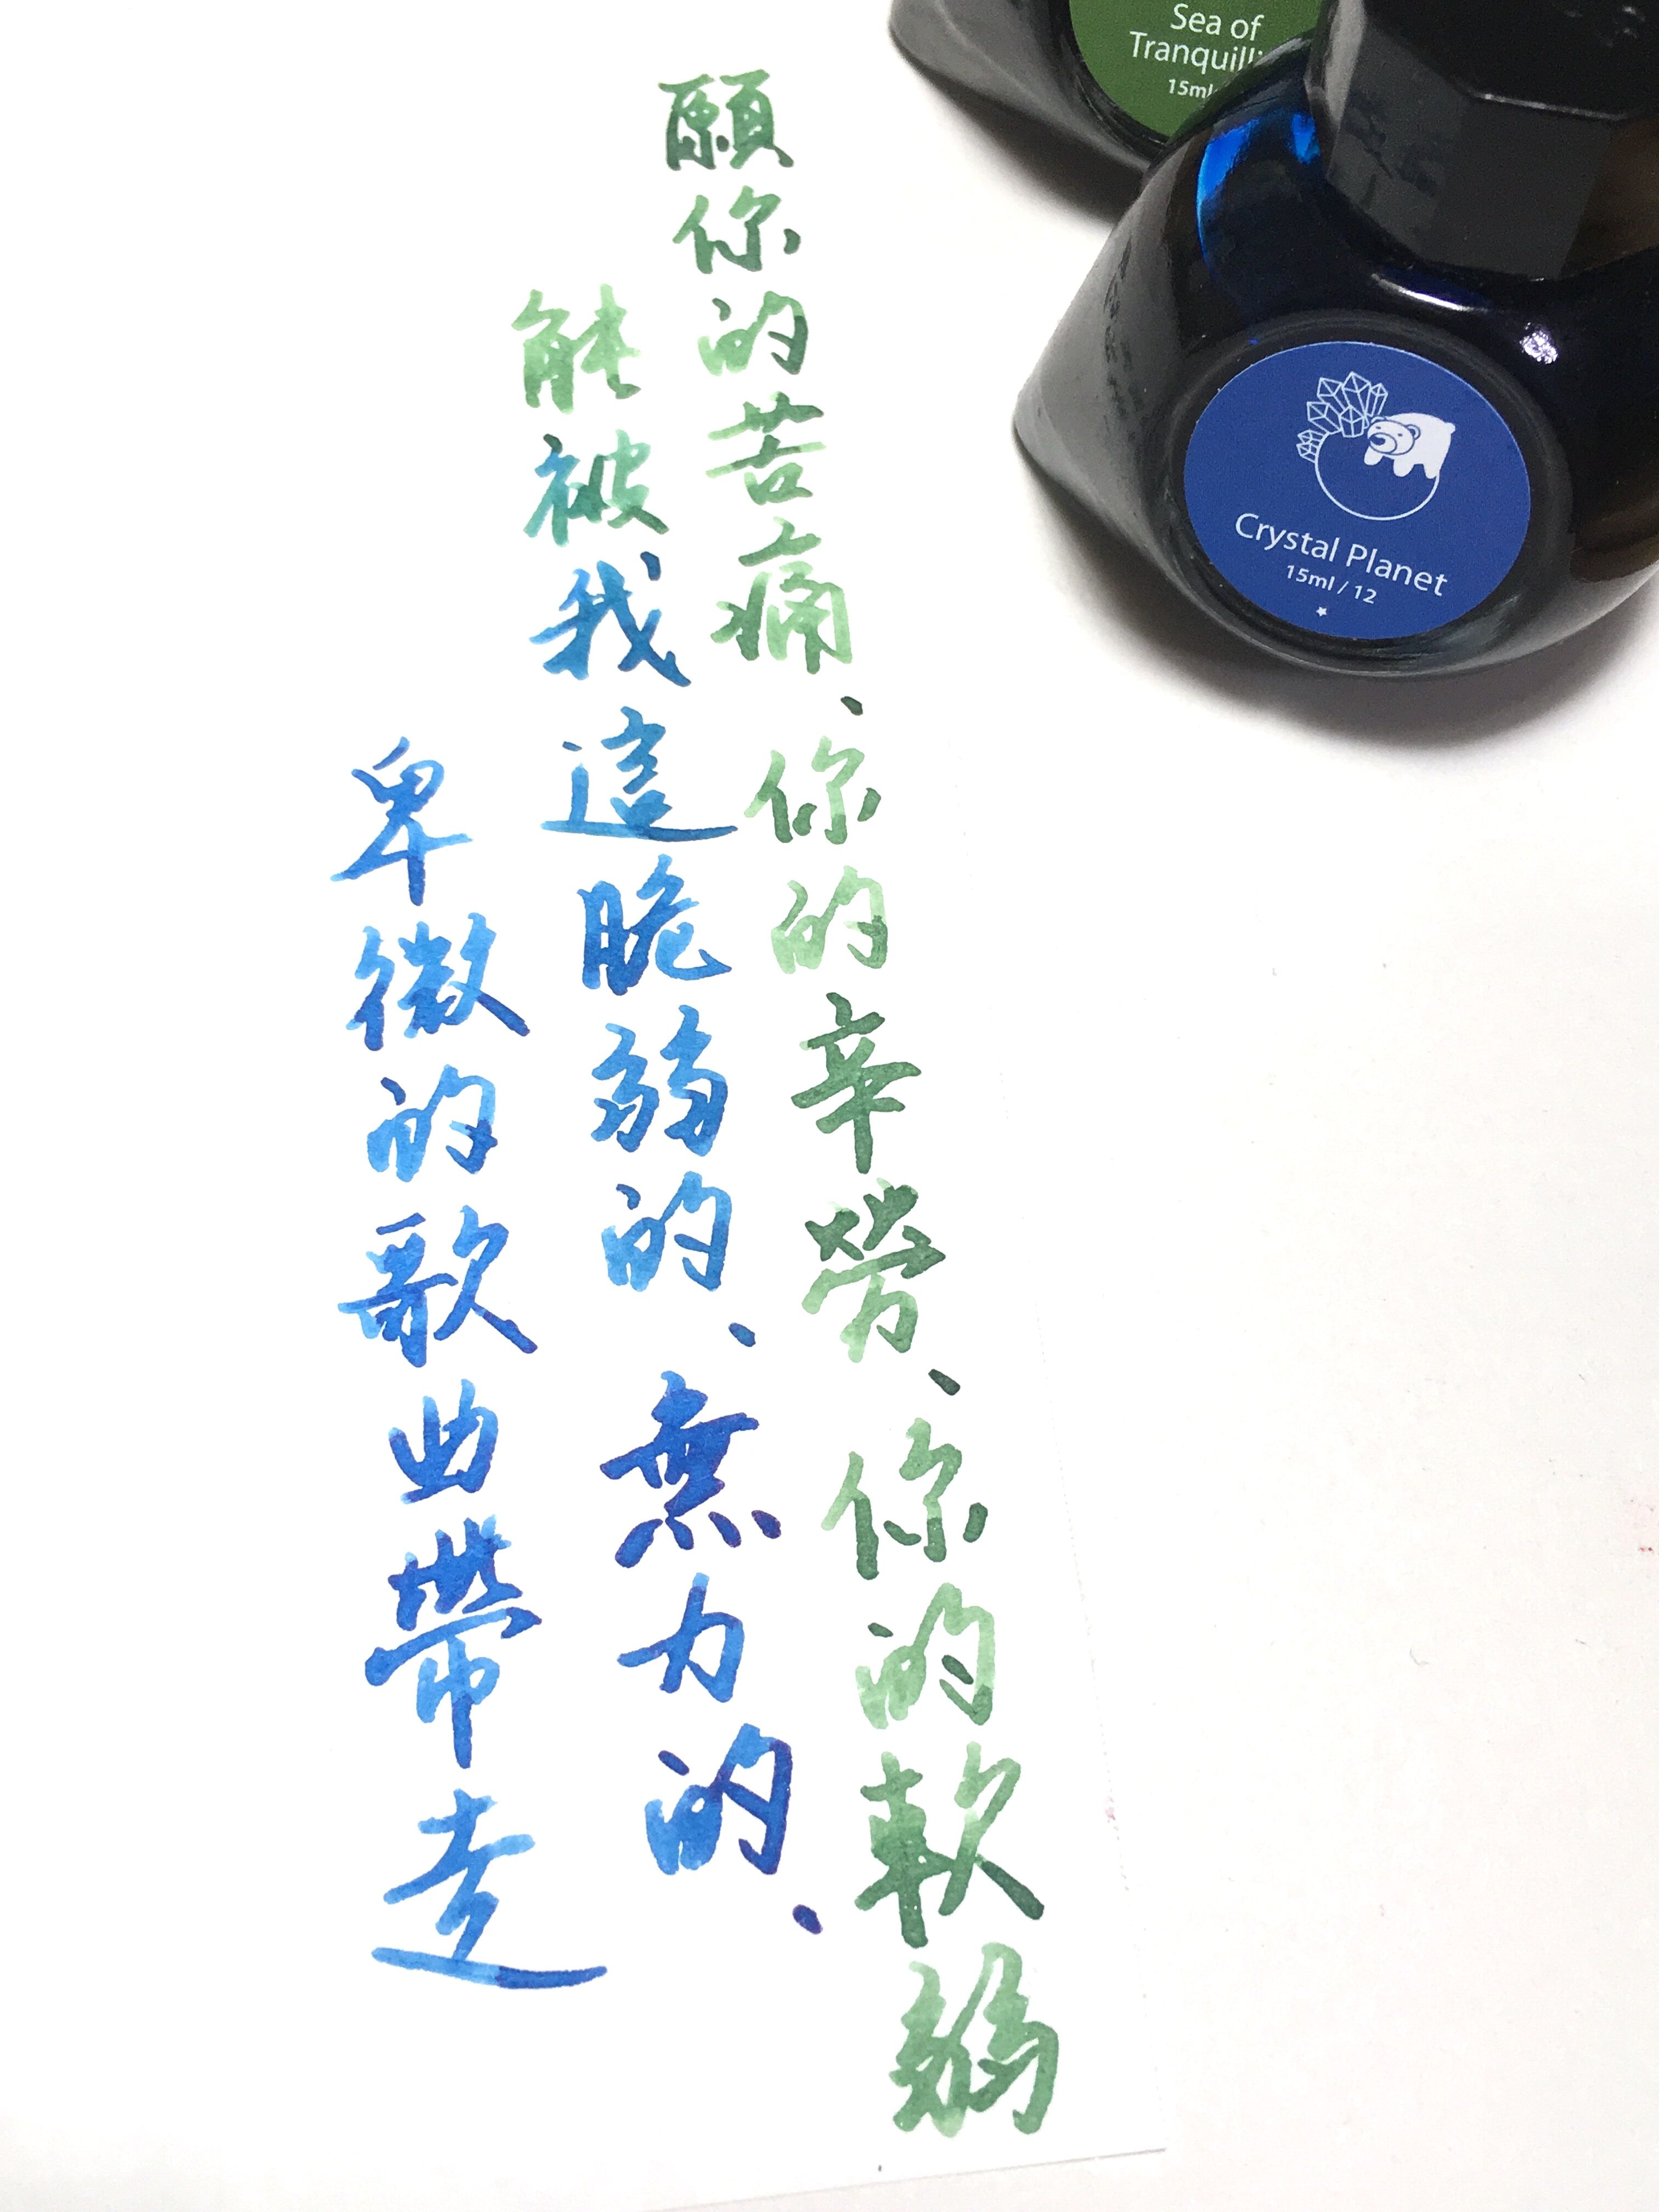 願你的苦痛、你的辛勞、你的軟弱
能被我這脆弱的、無力的、
卑微的歌曲帶走
Sea of
15ml
Crystal Planet
15ml / 12